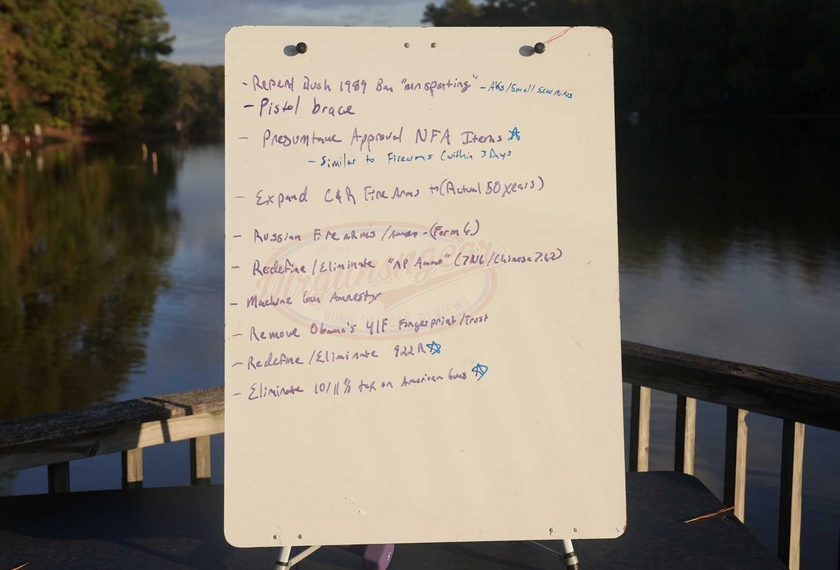 - Repeal Bush 1989 Ban "non sporting" - AKs/Small Saw Rifles
- Pistol brace
- Presumtave Approval NFA Items
- Similar to Firearms (within 3 Days
- Expand C&R Fire Arms to (Actual 50 years)
- Russian Firearms/Ammo - (Form 6)
- Redefine/Eliminate "AP Ammo" (7N6/Chinese 7.62)
- Machine Gun Amnesty
- Remove Obama's 41F Fingerprint/Trust
- Redefine/Eliminate 922R
- Eliminate 10/11% tax on American Guns